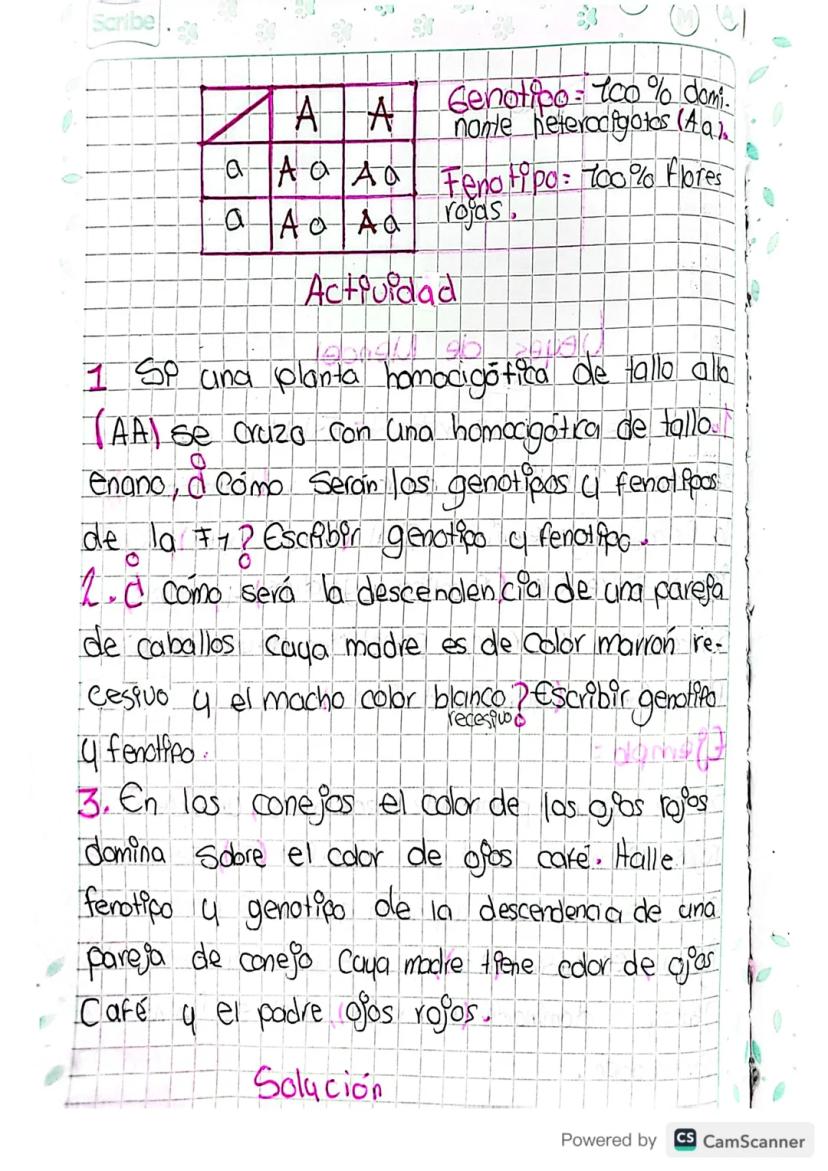 Scribe
M A
A A
a Aa Aa
a Aa Aa
Genotipo = 100% domi-
nante heterocigotos (Aa).
Fenotipo = 100% flores
rojas.
Actividad
1 Si una planta homocigótica de tallo alto
(AA) se cruza con una homocigótica de tallo
enano, ¿Cómo serán los genotipos y fenotipos
de la F1? Escribir genotipo y fenotipo.
2. ¿cómo será la descendencia de una pareja
de caballos cuya madre es de color marrón re-
cesivo y el macho color blanco? Escribir genotipo
recesivo
y fenotipo.
3. En los conejos el color de los ojos rojos
domina sobre el color de ojos café. Halle
fenotipo y genotipo de la descendencia de una
pareja de conejo cuya madre tiene color de ojos
Café y el padre ojos rojos.
Solución
Powered by CS CamScanner